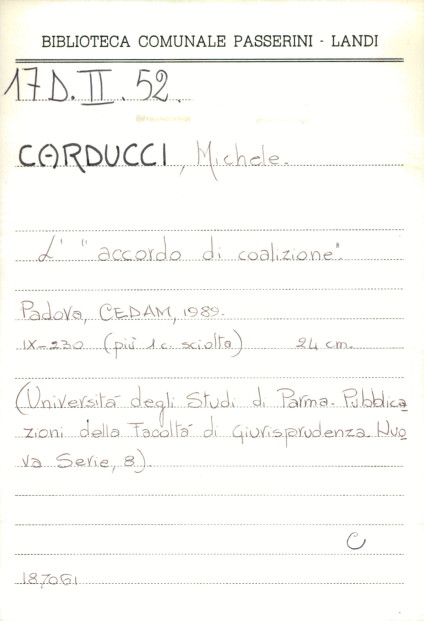 BIBLIOTECA COMUNALE PASSERINI - LANDI
17 D. II. 52.
CARDUCCI, Michele.
L' "accordo di coalizione".
Padova, CEDAM, 1989.
IX-230 (più 1 c. sciolta) 24 cm.
(Università degli Studi di Parma. Pubblica
zioni della Facoltà di Giurisprudenza. Nuo
va Serie, 8).
C
187061